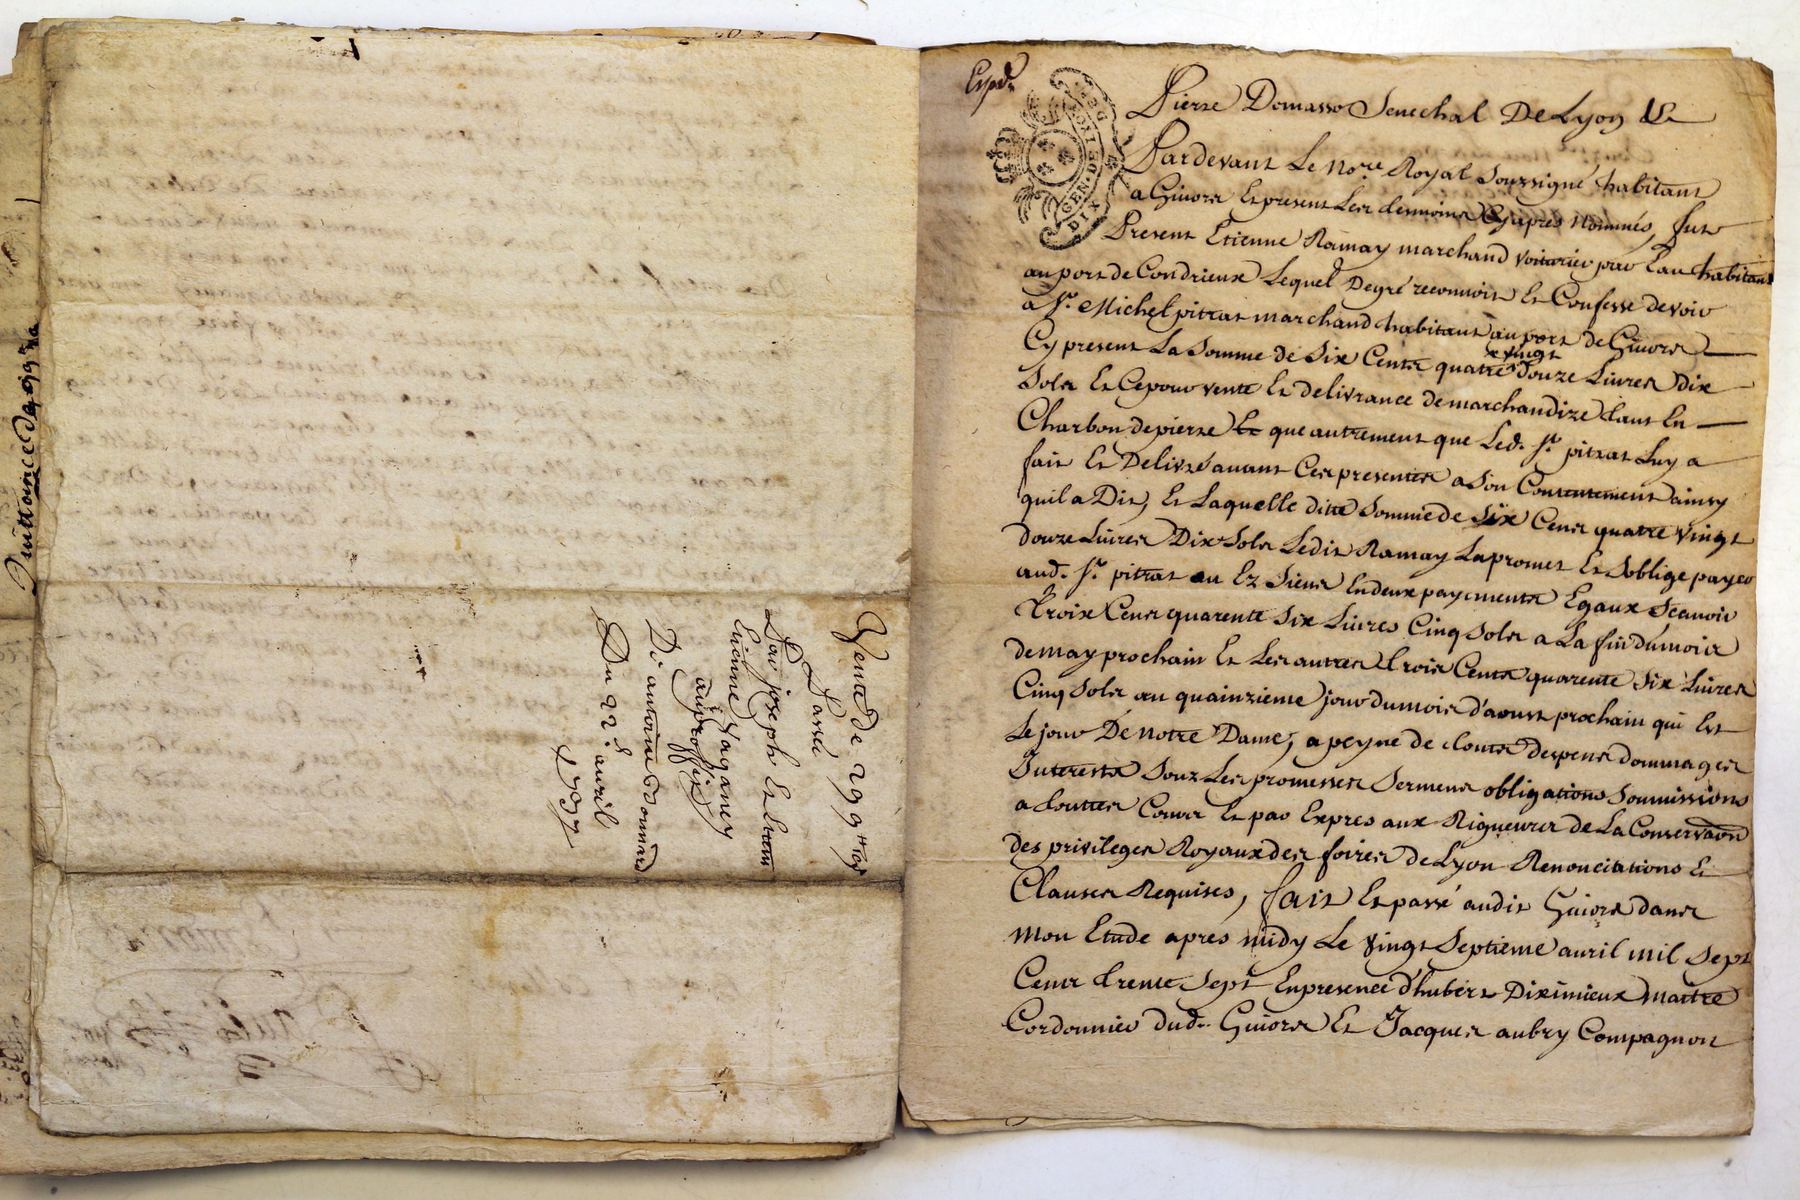 Quittance de 99#
Vente de 299#
Passé
Par joseph Et
Etienne Paganey
au proffit
De antoine Donnard
Du 22e. avril
1737
Expd.
GEN. DE LYON
DIX
Pierre Domasso Senechal De Lyon &c
Pardevant Le Nore. Royal Soussigné habitant
a Givors Et present Les temoins Cy apres Nommés, fut
Present Etienne Ramay marchand voiturier par Eau habitant
au port de Condrieux Lequel De gré reconnoit Et Confesse devoir
a Sr. Michel pitrat marchand habitant au port de Givors
Cy present La Somme de Six Cents quatre x vingt Douze Livres Dix
Sols Et Ce pour vente Et delivrance de marchandize tant En
Charbon de pierre Et que autrement que Led. Sr. pitrat Luy a
fait Et Delivré avant Ces presentes a Son Contentement ainsy
quil a Dit, Et Laquelle ditte Somme de Six Cens quatre vingt
douze Livres Dix Sols Ledit Ramay La promet Et S'oblige payer
aud. Sr. pitrat ou Ez Siens En deux payements Egaux Scavoir
Trois Cens quarente Six Livres Cinq Sols a La fin du mois
de may prochain Et Les autres trois Cents quarente Six Livres
Cinq Sols au quainzieme jour du mois d'aoust prochain qui Est
Le jour De Notre Dame, a peyne de touts despens dommages
Interests Souz Les promesses Sermens obligations Soumissions
a touttes Cours Et par Expres aux Rigueurs de La Conservaon
des privileges Royaux des foires de Lyon Renoncitations Et
Clauses Requises, fait Et passé audit Givors dans
mon Etude apres midy Le vingt Septieme avril mil Sept
Cents trente Sept En presence d'hubert Diximieux maitre
Cordonnier dud. Givors Et Jacques aubry Compagnon